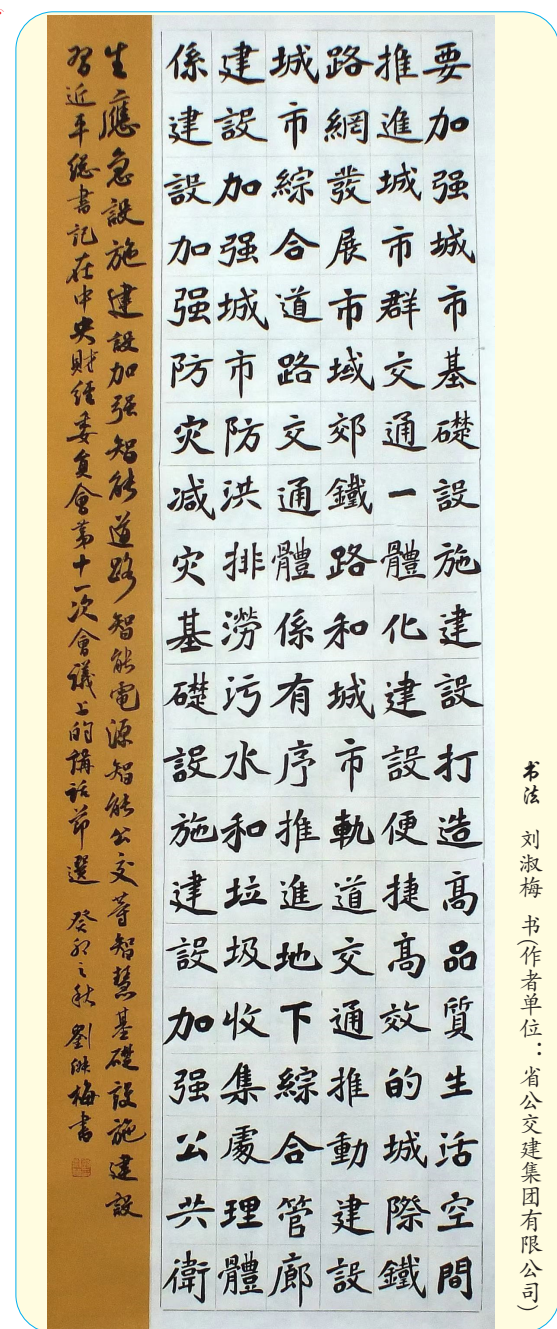 要加强城市基礎設施建設打造高品質生活空間
推進城市群交通一體化建設便捷高效的城際鐵
路網發展市域郊鐵路和城市軌道交通推動建設
城市綜合道路交通體係有序推進地下綜合管廊
建設加强城市防洪排澇污水和垃圾收集處理體
係建設加强防灾减灾基礎設施建設加强公共衛
生應急設施建設加强智能道路智能電源智能公交等智慧基礎設施建設
習近平總書記在中央財經委員會第十一次會議上的講話節選 癸卯之秋 劉淑梅書
书法 刘淑梅 书(作者单位：省公交建集团有限公司)